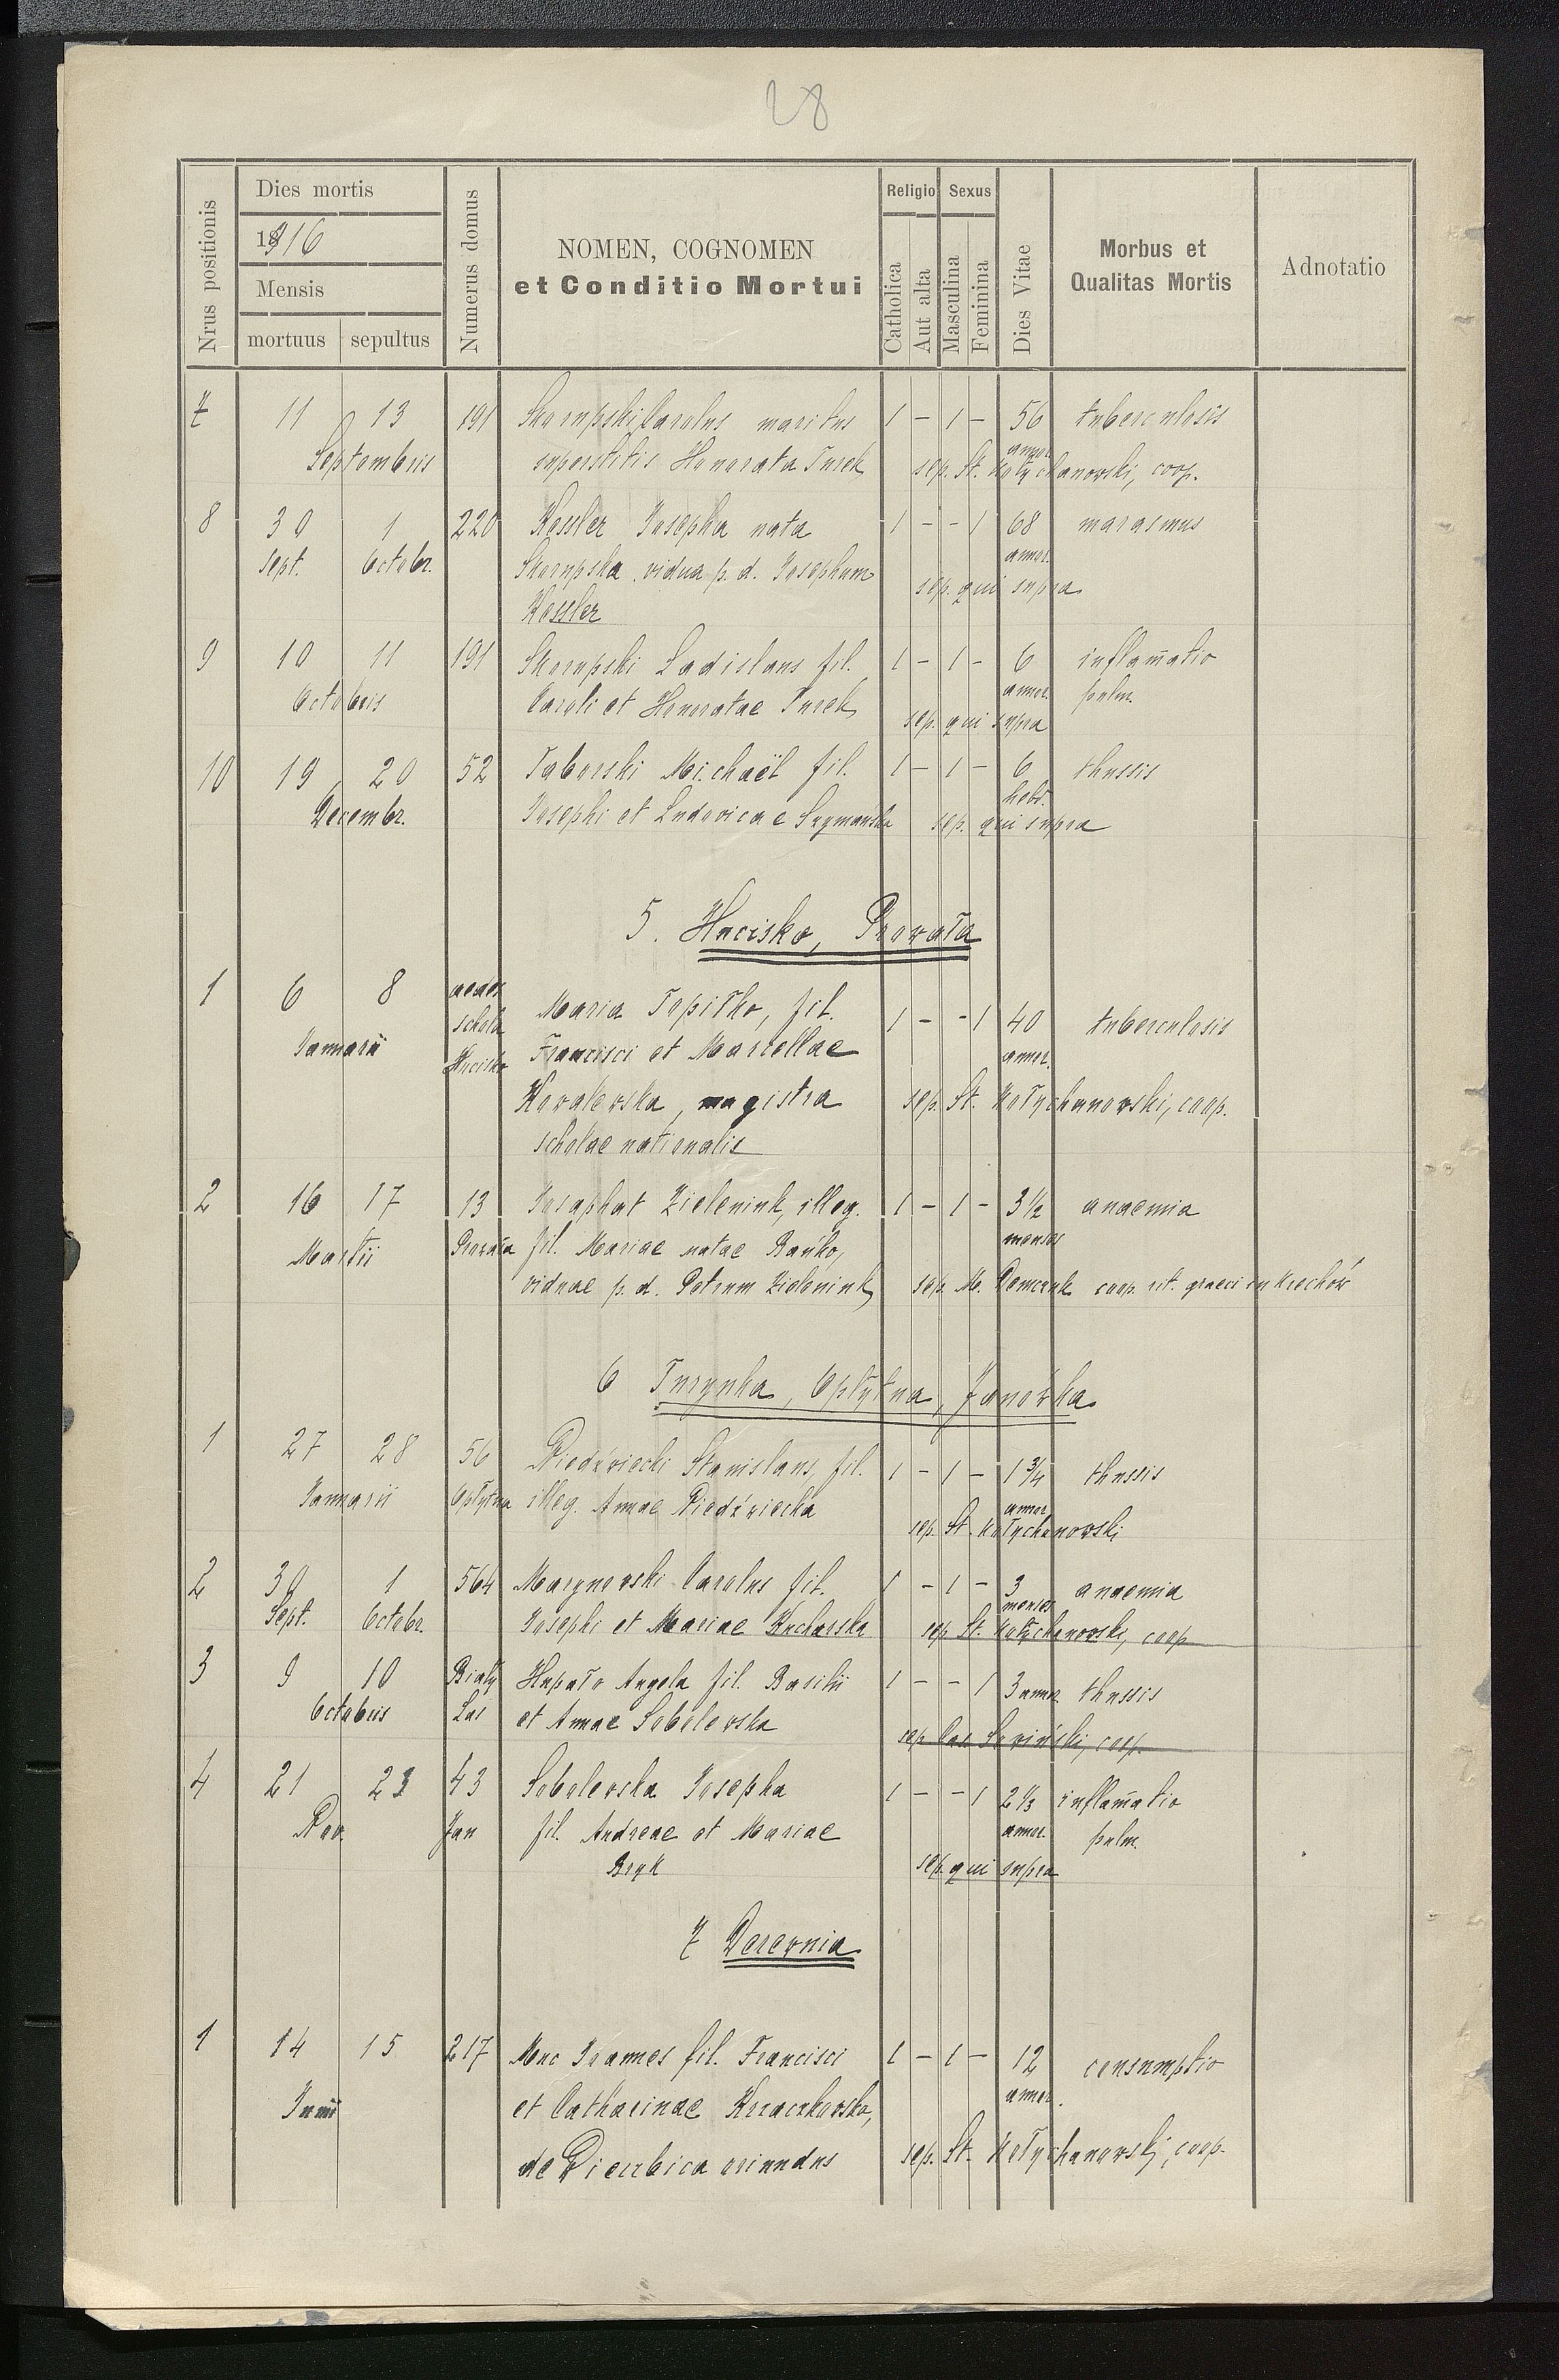 28
Nrus positionis
Dies mortis
1916
Mensis
mortuus sepultus
Numerus domus
NOMEN, COGNOMEN
et Conditio Mortui
Religio Sexus
Catholica
Aut alta
Masculina
Feminina
Dies Vitae
Morbus et
Qualitas Mortis
Adnotatio
7 11 13 191 Skorupski Carolus maritus 1 - 1 - 56 tuberculosis
Septembris superstitis Honorata Turek annor. sep. St. Kotychanowski, coop.
8 30 1 220 Kessler Josepha nata 1 - - 1 68 marasmus
Sept. Octobr. Skorupska, vidua p. d. Josephum annor. sep. qui supra
Kessler
9 10 11 191 Skorupski Ladislaus fil. 1 - 1 - 6 inflam̄atio
Octobris Caroli et Honoratae Turek annor. pulm.
sep. qui supra
10 19 20 52 Taborski Michaël fil. 1 - 1 - 6 thussis
Decembr. Josephi et Ludovicae Szymanska hebd. sep. qui supra
5. Hucisko, Prowała
1 6 8 aedes Maria Topiłko, fil. 1 - - 1 40 tuberculosis
Januarii schola Hucisko Francisci et Marcellae annor.
Kowalewska, magistra sep. St. Kotychanowski, coop.
scholae nationalis
2 16 17 13 Josaphat Zielenink, illeg. 1 - 1 - 3 1/2 anaemia
Martii Prowała fil. Mariae natae Bańko, menses
viduae p. d. Petrum Zielenink sep. M. Demczuk coop. rit. graeci in Krechów
6 Turynka, Opłytna, Janówka
1 27 28 56 Niedźwiecki Stanislaus, fil. 1 - 1 - 1 3/4 thussis
Januarii Opłytna illeg. Annae Niedźwiecka annor.
sep. St. Kotychanowski
2 30 1 564 Marynowski Carolus fil. 1 - 1 - 3 anaemia
Sept. Octobr. Josephi et Mariae Kucharska menses sep. St. Kotychanowski, coop.
3 9 10 Biały Hupało Angela fil. Basilii 1 - - 1 3 annor. thussis
Octobris Las et Annae Sobolewska
sep. Cas. Sowiński, coop.
4 21 23 43 Sobolewska Josepha 1 - - 1 2 1/3 inflam̄atio
Nov. Jan fil. Andreae et Mariae annor. pulm.
Bryk sep. qui supra
7 Derewnia
1 14 15 217 Muc Joannes fil. Francisci 1 - 1 - 12 consumptio
Junii et Catharinae annor.
de oriundus sep. St. Kotychanowski, coop.